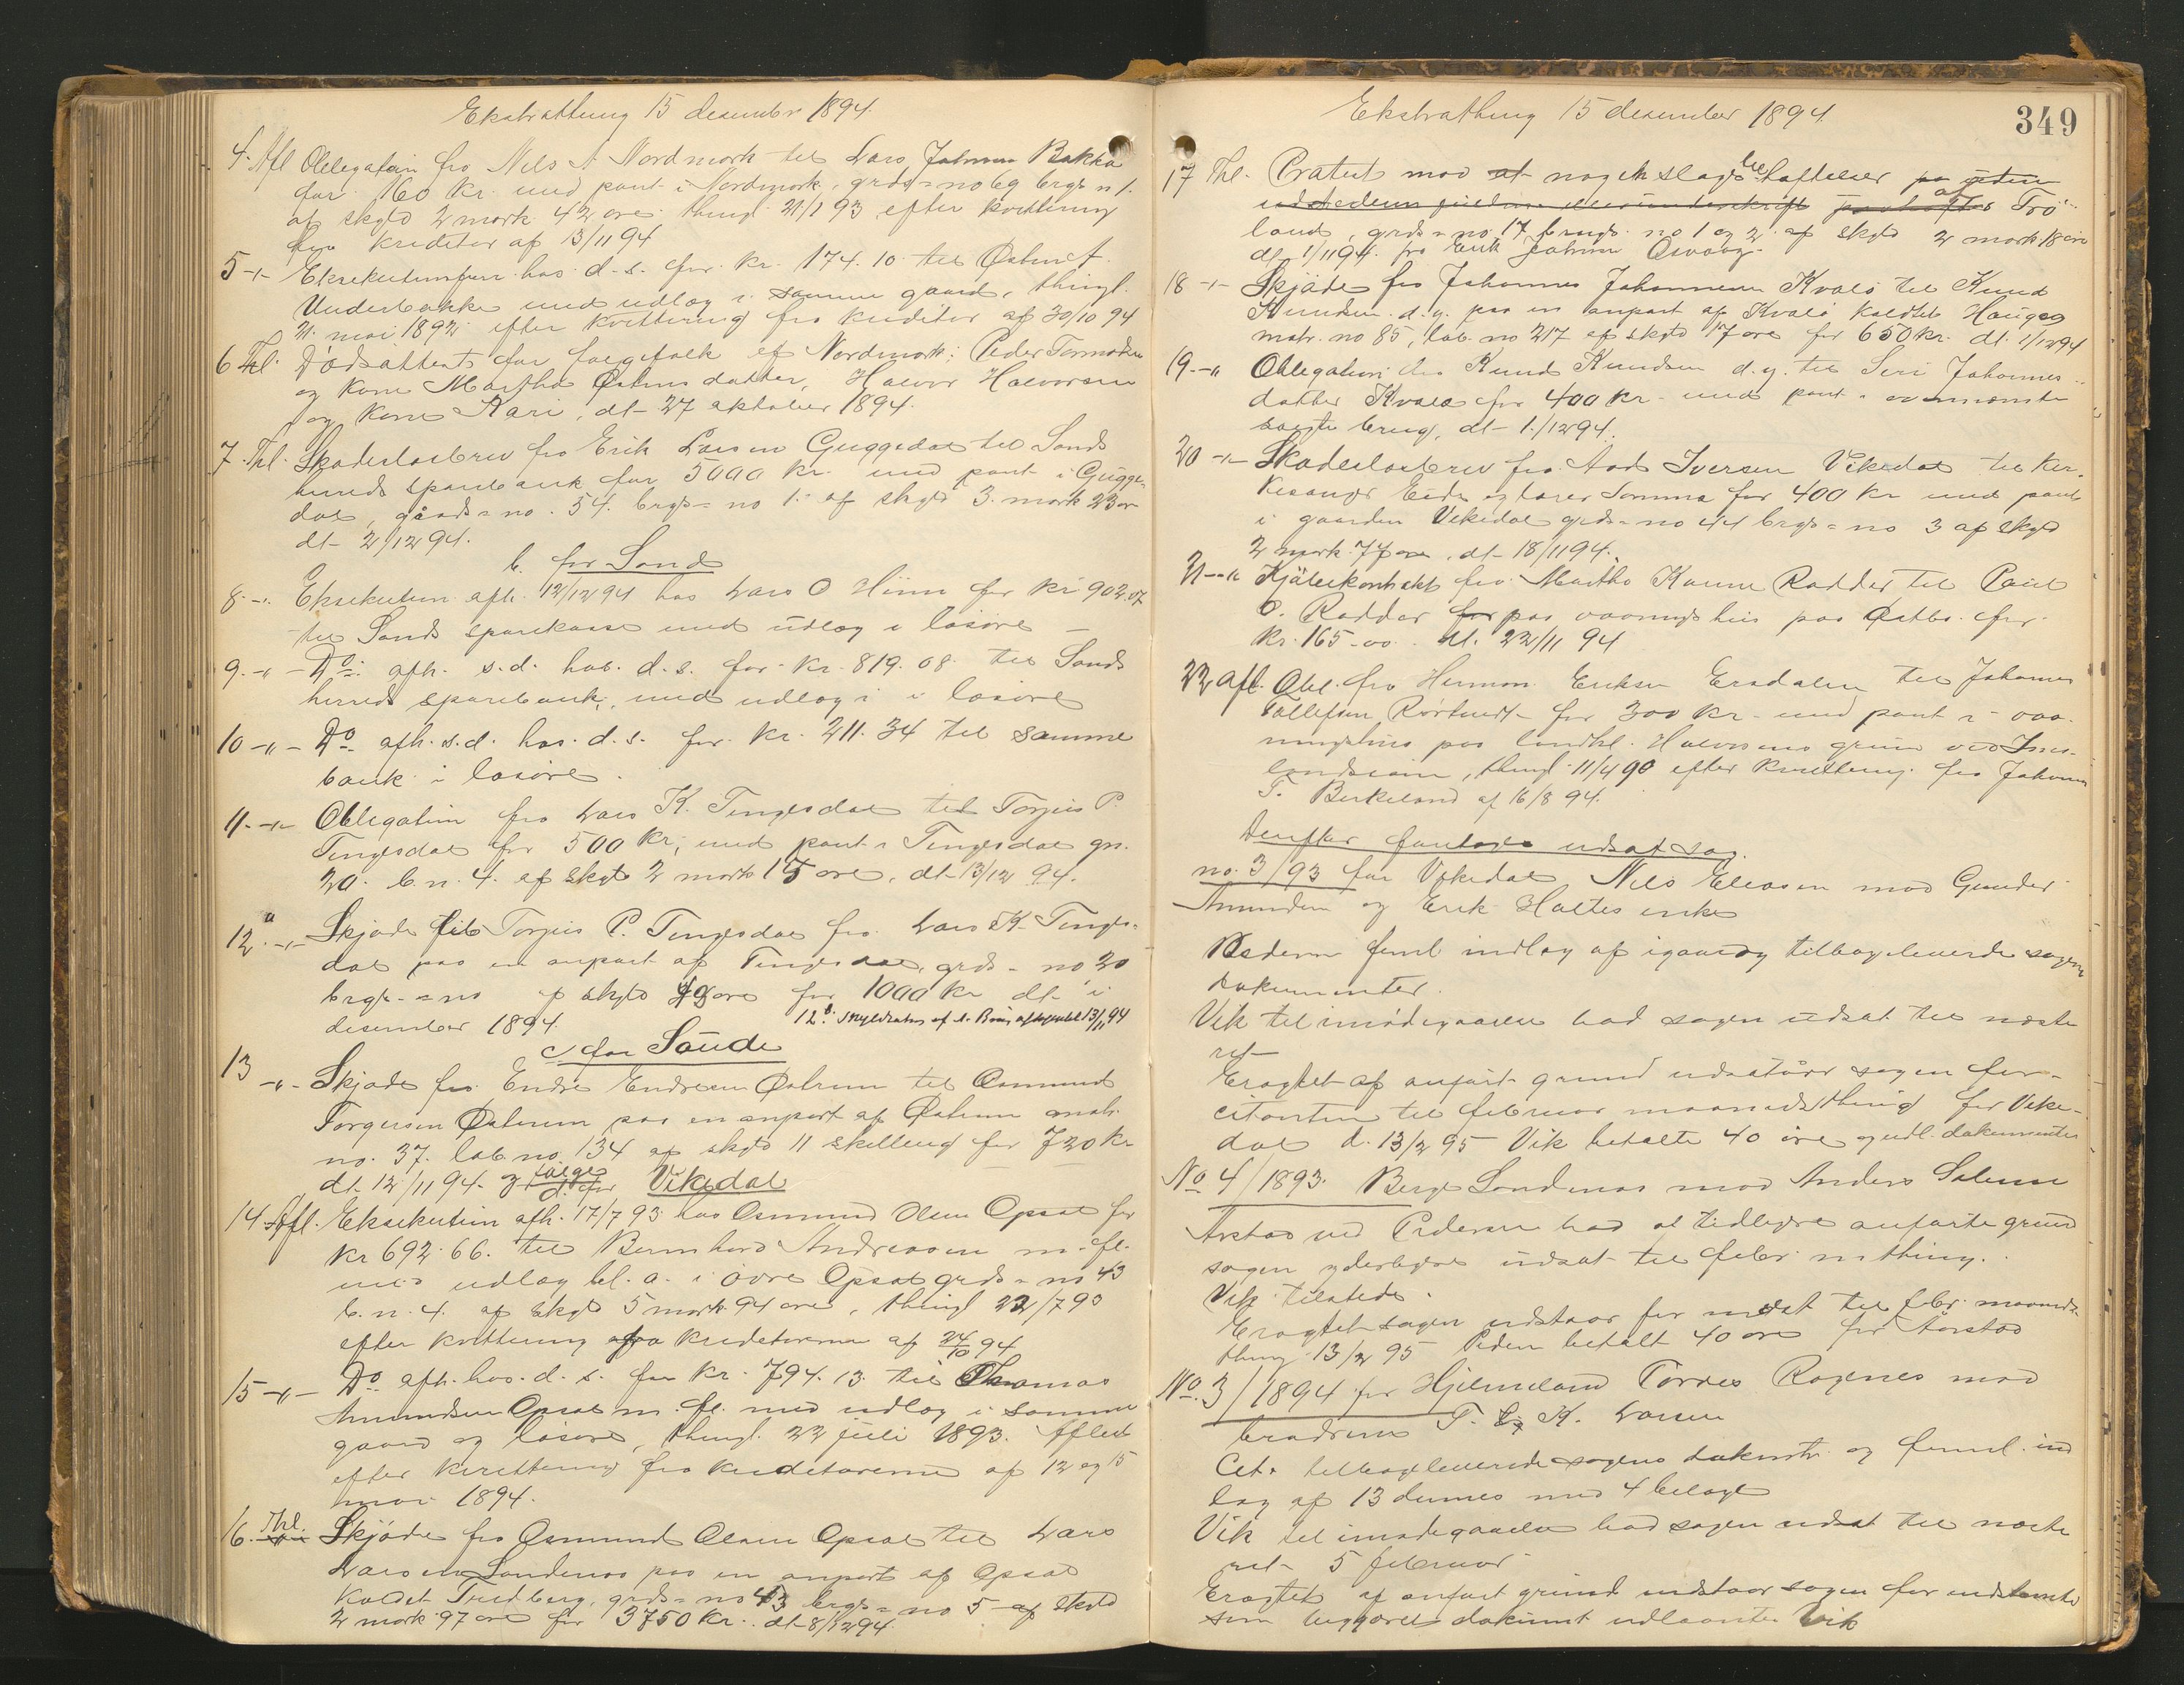 Ekstrathing 15 desember 1894.
4. Afl Obligation fra Nils A Nordmork til Lars Bakka
for 160 kr. med pant i Nordmork, grds=no 69 brgs n 1.
af skyld 2 mark 42 øre thingl 21/1 93 efter kvittering
fra kreditor af 13/11 94
5 -"- Eksekution hos d. s. for kr. 174.10 til Østen
Underbakke med udlæg i samme gaard, thingl.
21. mai 1892 efter kvittering fra kreditor af 30/10 94
6 Thl. Dødsattest for folgefolk af Nordmork: Peder Tormodsen
og kone Martha Østensdatter, Halvor Halvorsen
og kone Kari, dt- 27 oktober 1894.
7. Thl. Skadesløsbrev fra Erik Larsen Guggedal til Sands
herreds sparebank for 5000 kr. med pant i Gugge-
dal, gaards=no. 54. brgs=no 1. af skyld 3. mark 23 ør
dt- 2/12 94.
b. for Sand
8. -"- Eksekution afh. 12/12 94 hos Lars O Hiim for kr 902.07
til Sands sparekasse med udlæg i løsøre
9. -"- Do afh. s.d. hos. d. s. for kr. 819.08 til Sands
herreds sparebank, med udlæg i løsøre
10 -"- Do afh. s.d. hos. d. s. for kr. 211.34 til samme
bank i løsøre.
11. -"- Obligation fra Lars K. Tengesdal til Torgeis P.
Tengesdal for 500 kr, med pant i Tengesdal gn.
20. b. n. 4. af skyld 2 mark 15 øre, dt- 13/12 94.
12 a -"- Skjøde til Torgeis P. Tengesdal fra Lars K. Tenges-
dal paa en anpart af Tengesdal, grds=no 20
brgs=no af skyld øre for 1000 kr dt- i
desember 1894. 12 b. Skyldsatn. af s. Brug 13/11 94
c. for Saude
13 -"- Skjøde fra Endre Endresen Østrem til Osmund
Torgersen Østrem paa en anpart af Østrem matr.
no. 37. løb.no. 134 af skyld 11 skilling for 720 kr
dt- 12/11 94. d. for Vikedal
14 Afl. Eksekution afh. 17/7 93 hos Osmund Olsen Opsal for
kr 692.66. til Bernhard Andreasen m. fl.
med udlæg bl. a. i øvre Opsal grds=no 43
b. n. 4. af skyld 5 mark 94 øre, thingl 22/7 93
efter kvittering fra kreditorerne af 24/10 94
15 -"- Do afh. hos. d. s. for kr. 794.13. til Thomas
Amundsen Opsal m. fl. med udlæg i samme
gaard og løsøre, thingl. 22 juli 1893. Aflest
efter kvittering fra kreditorerne af 12 og 15
mai 1894.
16. Thl. Skjøde fra Osmund Olsen Opsal til Lars
Larsen Sandenes paa en anpart af Opsal
kaldet Tredberg, grds=no 43 brgs=no 5 af skyld
2 mark 97 øre for 3750 kr. dt- 8/12 94.
Ekstrathing 15 desember 1894
349
17 Thl. Protest mod at nogen slags behæftelser
af Trö-
land, grds=no 17 brugs no 1 og 2 af skyld 2 mark 18 øre
dt. 1/11 94. fra Erik
18 -"- Skjøde fra Johannes Johannesen Kvalø til Knud
Knudsen d. y. paa en anpart af Kvalø kaldet Haugen
matr. no 85, løb. no 217 af skyld 17 øre for 650 kr. dt. 1/12 94
19. -"- Obligation fra Knud Knudsen d. y. til Siri Johannes-
datter Kvalø for 400 kr. med pant i ovennævnte
solgte brug, dt- 1./12 94.
20 -"- Skadesløsbrev fra Aad Iversen Vikedal til
Eide og Lars Somme for 400 kr med pant
i gaarden Vikedal grds=no 44 brgs=no 3 af skyld
2 mark 74 øre. dt- 18/11 94.
21 -"- Kjøbekontrakt fra Martha Karine Rødder til Paul
O. Rødder paa vaaningshus paa Østbø for
kr. 165-00. dt. 22/11 94
22 Afl. Obl. fra Herman Eriksen Ersdalen til Johannes
Tollefsen Rørtvedt for 300 kr- med pant i vaa-
ningshus paa landhl. Halvorsens grund ved Ims-
landssjøen, thingl. 11/4 90 efter kvittering fra Johannes
T. Birkeland af 16/8 94.
Derefter foretoges udsat sag.
no. 3/93 for Vikedal Nils Eliasen mod Gunder
Amundsen og Erik Haltes enke
Pedersen freml indlæg af igaar og tilbageleverede sagens
dokumenter.
Vik til imødegaaelse bad sagen udsat til næste
ret-
Eragtet af anført grund udstaar sagen for
citanten til februar maaneds thing for Vike-
dal d. 13/2 95 - Vik betalte 40 øre og udl. dokumenter
No 4/1893. Berge Sandenes mod Anders Salene
Arstad ved Pedersen bad af tidligere anførte grund
sagen yderligere udsat til febr. m thing.
Vik tilstede.
Eragtet sagen udstaar for modst til febr. maaneds-
thing 13/2 95 Peder. betalt 40 øre for Aarstad
No. 3/1894 for Hjelmeland Tordes Ragnes mod
brødrene T. & K. Larsen
Cit. tilbageleverede sagens dokumtr. og freml. ind
læg af 13 dennes med 4 bilage
Vik til imødegaaelse bad sagen udsat til næste
ret- 5 februar
Eragtet af anført grund udstaar sagen for indstævnte
som begjæret dokumt udlaantes Vik